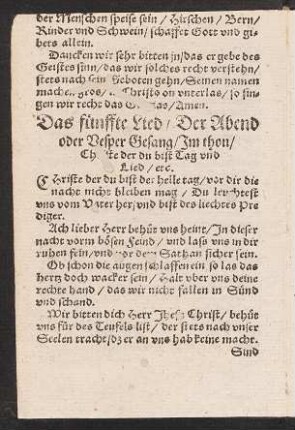 der Menschen speise sein / Hirschen / Bern /
Rinder und Schwein / schafft Gott und gi-
bets allein.
Dancken wir sehr bitten jn / das er gebe des
Geistes sinn / das wir solches recht verstehn /
stets nach sein Geboten gehn / Seinen namen
machen gros / Christo on unterlas / so sin-
gen wir recht das / Amen.
Das fünffte Lied / Der Abend
oder Vesper Gesang / Im thon /
Christe der du bist Tag und
Lied / etc.
Christe der du bist der helle tag / vor dir die
nacht nicht bleiben mag / Du leuchtest
uns vom Vater her / und bist des liechtes Pre
diger.
Ach lieber Herr behüt uns heint / In dieser
nacht vorm bösen Feind / und lass uns in dir
ruhen fein / und vor dem Sathan sicher sein.
Ob schon die augen schlaffen ein so las das
hertz doch wacker sein / Halt über uns deine
rechte hand / das wir nicht fallen in Sünd
und schand.
Wir bitten dich Herr Jhesu Christ / behüt
uns für des Teufels list / der stets nach unser
Seelen tracht / dz er an uns hab keine macht.
Sind